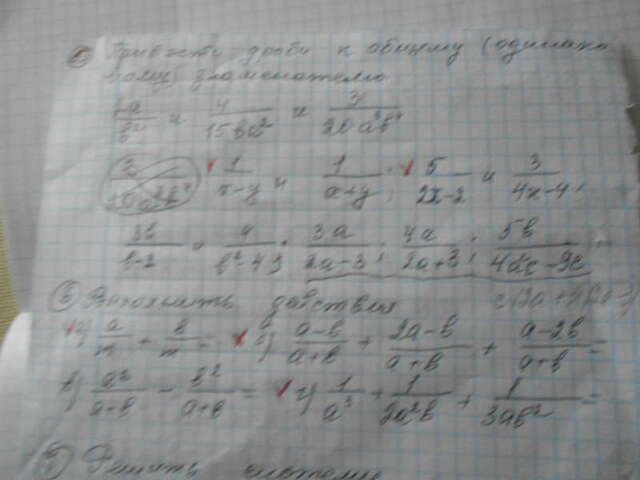 5) Привести дроби к общему (одинако
вому) знаменателю
2a/b² и 4/15ba² и 3/20a³b⁴
1/x-y и 1/x+y; 5/2x-2 и 3/4x-4;
3b/b-2 и 4/b²-4; 3a/2a-3; 4a/2a+3; 5b/4a²c-9c
6) Выполнить действия
a) a/m + b/m = б) a-b/a+b + 2a-b/a+b + a-2b/a+b =
в) a²/a+b - b²/a+b = г) 1/a³ + 1/2a²b + 1/3ab² =
7) Решить системы